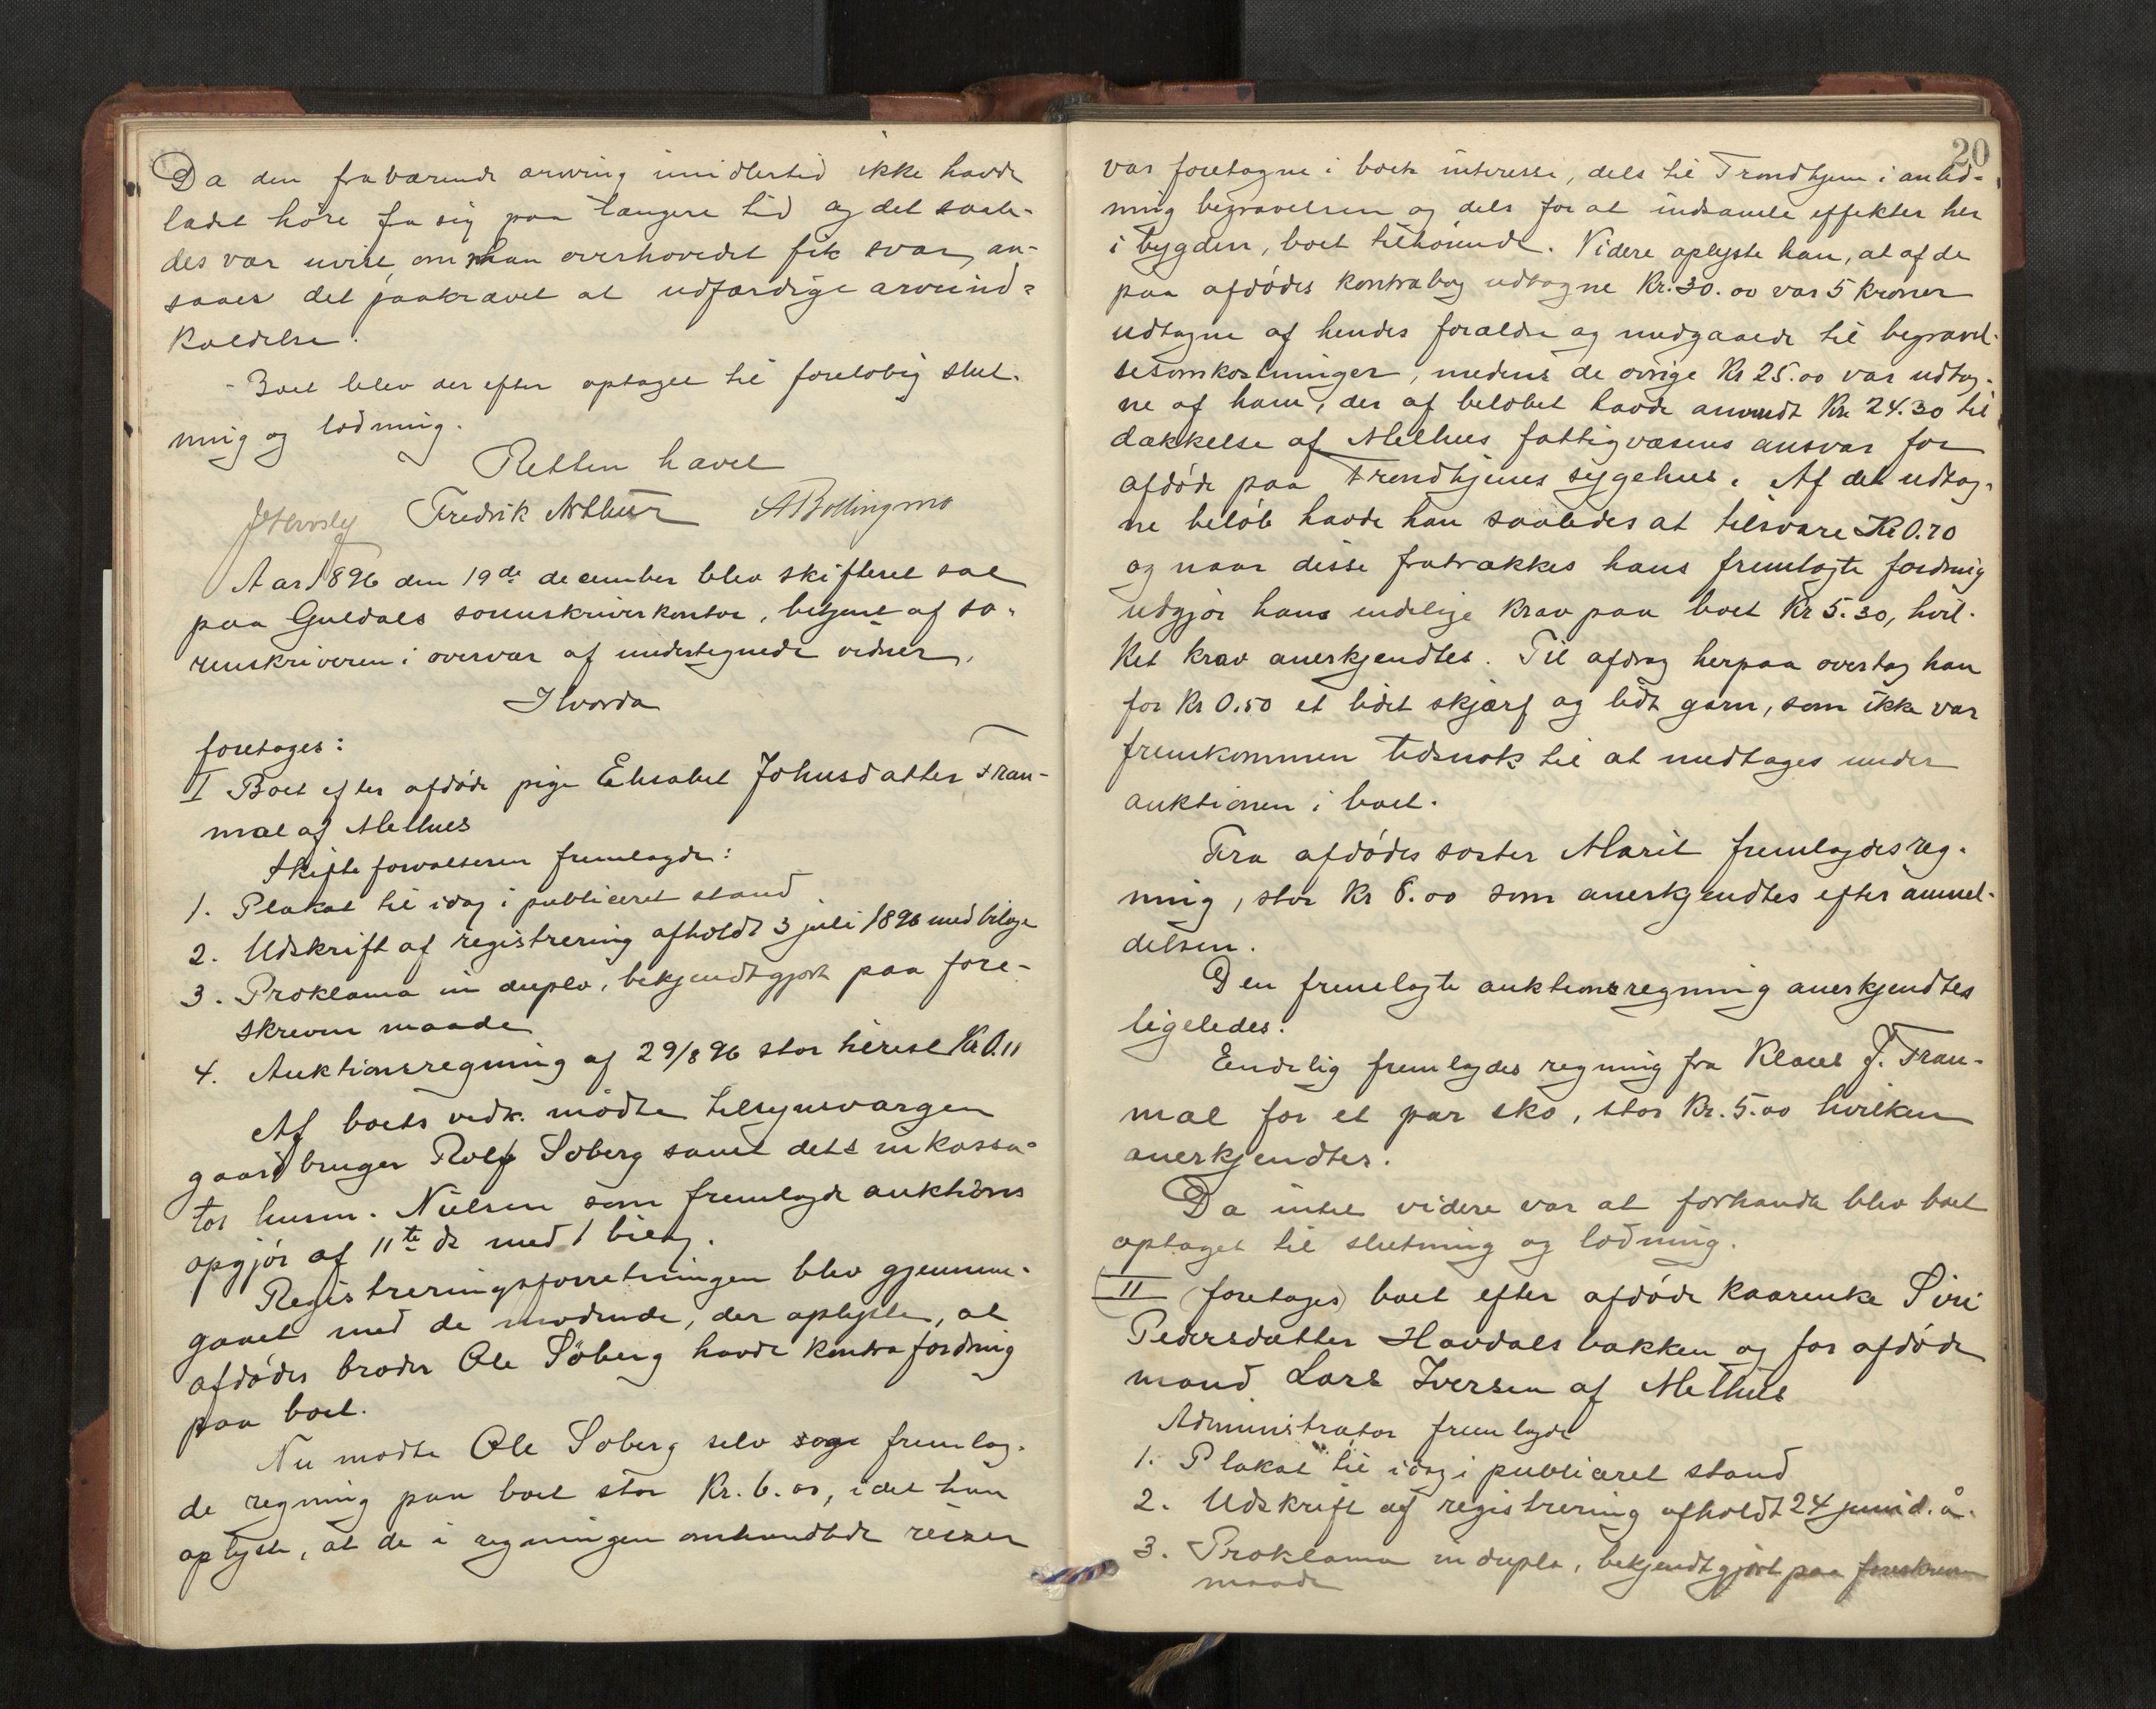 Da den fraværende arving imidlertid ikke havde
ladet höre fra sig paa længere tid og det saale-
des var uvist, om man overhovedet fik svar, an-
saaes det paakrævet at udfærdige arveind-
kaldelse.
- Boet blev der efter optaget til foreløbig slut-
ning og lodning.
Retten hævet
Fredrik Arthur ABollingmo
Aar 1896 den 19de december blev skifteret sat
paa Guldals sorenskriverkontor, betjent af so-
renskriveren i overvær af undertegnede vidner.
Hvorda
foretages:
I Boet efter afdöde pige Elisabet Johnsdatter Tran-
mæl af Melhus
Skifteforvalteren fremlagde:
1. Plakat til idag i publiceret stand
2. Udskrift af registrering afholdt 3 juli 1896 med bilage
3. Proklama in duplo, bekjendtgjort paa fore-
skreven maade
4. Auktionsregning af 29/8 96 stor hidrest Kr 0.11
Af boets vedk. mödte tilsynsværgen
gaardbruger Rolf Söberg samt dets inkassa-
tor husm. Nielsen som fremlagde auktions
opgjör af 11te ds med 1 bilag.
Registreringsforretningen blev gjennem-
gaaet med de mødende, der oplyste, at
afdödes broder Ole Söberg havde kontrafordring
paa boet.
Nu mødte Ole Søberg selv og fremlag-
de regning paa boet stor Kr. 6.00, idet han
oplyste, at de i regningen omhandlede reiser
20
var foretagne i boets interesse, dels til Trondhjem i anled-
ning begravelsen og dels for at indsamle effekter her
i bygden, boet tilhörende. Videre oplyste han, at af de
paa afdödes kontrabog udtagne Kr. 30.00 var 5 kroner
udtagne af hendes forældre og medgaaede til begravel-
sesomkostninger, medens de øvrige Kr 25.00 var udtag-
ne af ham, der af beløbet havde anvendt Kr 24.30 til
dækkelse af Melhus fattigvæsens ansvar for
afdöde paa Trondhjems sygehus. Af det udtag-
ne belöb havde han saaledes at tilsvare Kr 0.70
og naar disse fratrækkes hans fremlagte fordring
udgjör hans endelige krav paa boet Kr 5.30, hvil-
ket krav anerkjendtes. Til afdrag herpaa overtog han
for Kr 0.50 et lidet skjærf og lidt garn, som ikke var
fremkommen tidsnok til at medtages under
auktionen i boet.
Fra afdödes søster Marit fremlagdes reg-
ning, stor Kr 6.00 som anerkjendtes efter anmel-
delsen.
Den fremlagte auktionsregning anerkjendtes
ligeledes.
Endelig fremlagdes regning fra Klaus J. Tran-
mæl for et par sko, stor Kr. 5.00 hvilken
anerkjendtes.
Da intet videre var at forhandle blev boet
optaget til slutning og lodning.
II (foretages) boet efter afdöde kaarenke Siri
Pedersdatter Havdalsbakken og for afdöde
mand Lars Iversen af Melhus
Administrator fremlagde
1. Plakat til idag i publiceret stand
2. Udskrift af registrering afholdt 24 juni d. å.
3. Proklama in duplo, bekjendtgjört paa foreskreven
maade